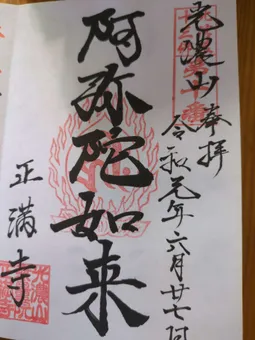 奉拝
光濃山
令和元年六月廿七日
阿弥陀如来
正満寺